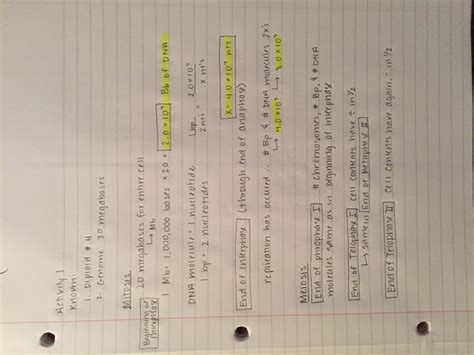 Activity 1
Known:
1. Diploid # 4
2. Genome 20 megabases
Mitosis
Beginning of Interphase
20 megabases for entire cell
↳ Mb
1 Mb = 1,000,000 bases × 20 = 2.0 × 10⁷ Bp of DNA
DNA molecule = 1 nucleotide
1 bp = 2 nucleotides
1 bp 2.0×10⁷
2 nt's x nt's
x = 4.0 × 10⁷ nts
End of Interphase (through end of anaphase)
replication has occured ∴ # Bp & # DNA molecules 2x's
↳ 4.0×10⁷ ↳ 8.0×10⁷
Meiosis
End of prophase I # chromosomes, # Bp, & # DNA
molecules same as in beginning of interphase
End of Telophase I cell contents have ÷ in 1/2
↳ same in End of Metaphase II
End of Telophase II cell contents have again, ÷ in 1/2